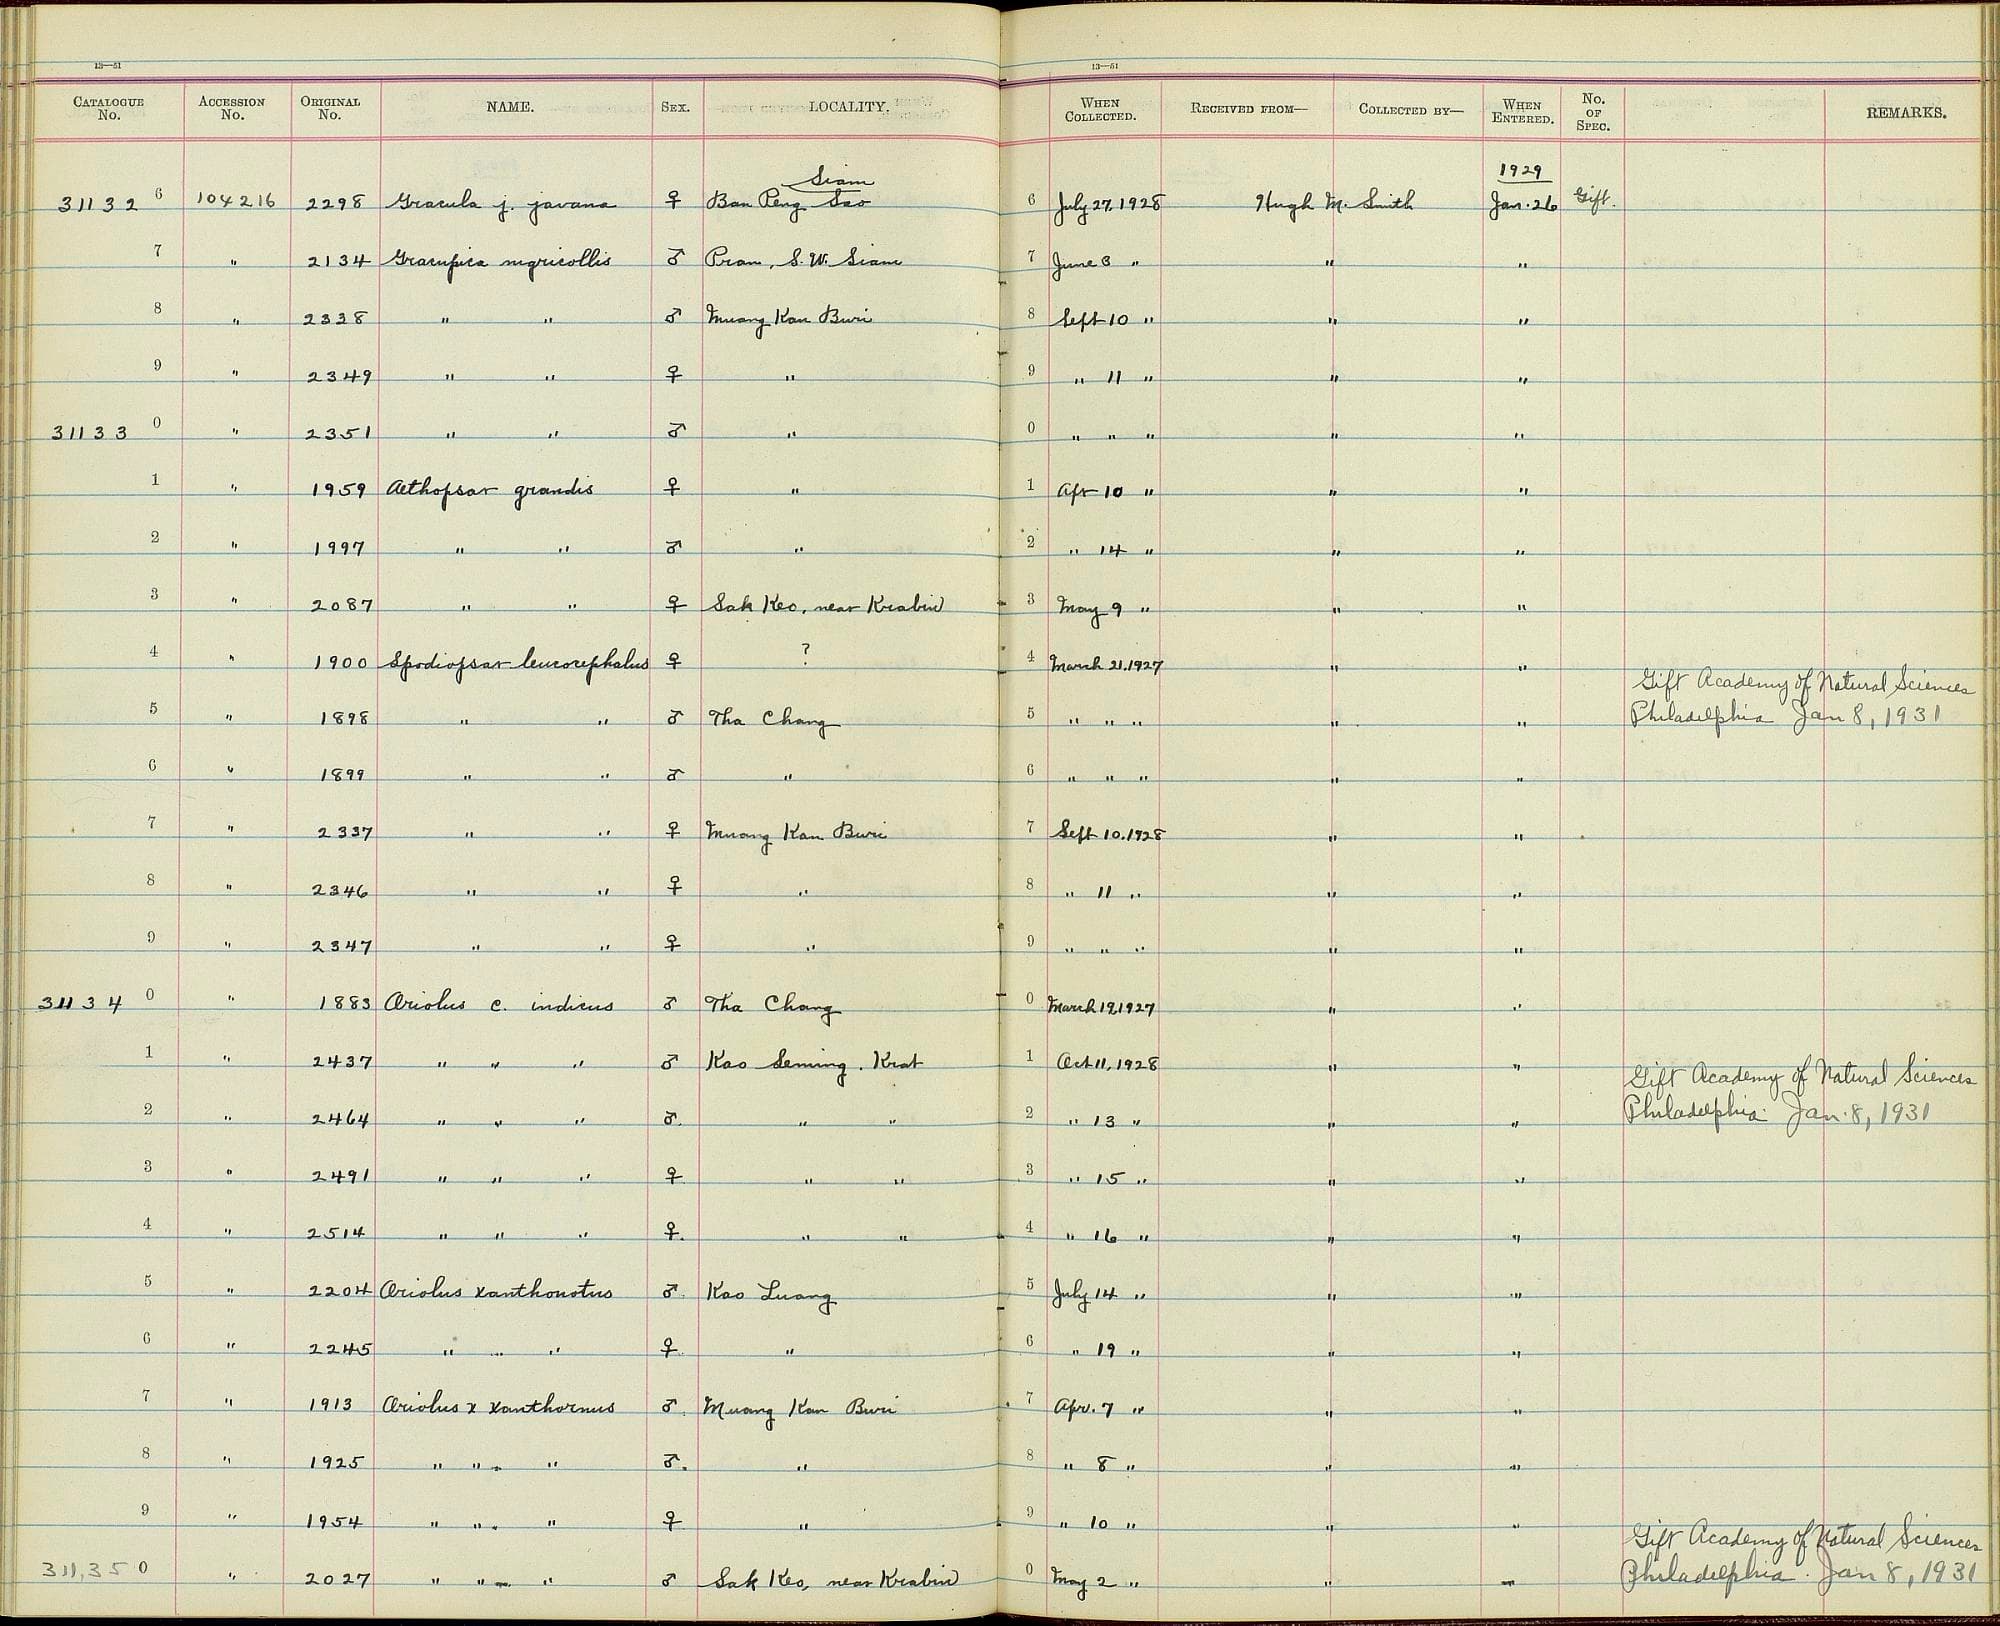 13—51 13—51
CATALOGUE No. ACCESSION No. ORIGINAL No. NAME. SEX. LOCALITY. WHEN COLLECTED. RECEIVED FROM— COLLECTED BY— WHEN ENTERED. No. OF SPEC. REMARKS.
Siam 1929
31132 6 104216 2298 Gracula j. javana ♀ Ban Peng Sao 6 July 27, 1928 Hugh M. Smith Jan. 26 Gift.
7 " 2134 Gracupica nigricollis ♂ Pran, S.W. Siam 7 June 8 " " "
8 " 2338 " " ♂ Muang Kan Buri 8 Sept 10 " " "
9 " 2349 " " ♀ " 9 " 11 " " "
31133 0 " 2351 " " ♂ " 0 " " " " "
1 " 1959 Aethopsar grandis ♀ " 1 Apr 10 " " "
2 " 1997 " " ♂ " 2 " 14 " " "
3 " 2087 " " ♀ Sak Keo, near Krabin 3 May 9 " " "
4 " 1900 Spodiopsar leucocephalus ♀ ? 4 March 21, 1927 " "
Gift Academy of Natural Sciences
5 " 1898 " " ♂ Tha Chang 5 " " " " " Philadelphia Jan 8, 1931
6 " 1899 " " ♂ " 6 " " " " "
7 " 2337 " " ♀ Muang Kan Buri 7 Sept 10. 1928 " "
8 " 2346 " " ♀ " 8 " 11 " " "
9 " 2347 " " ♀ " 9 " " " " "
31134 0 " 1883 Oriolus c. indicus ♂ Tha Chang 0 March 19, 1927 " "
1 " 2437 " " " ♂ Kao Seming. Krat 1 Oct 11, 1928 " " Gift Academy of Natural Sciences
2 " 2464 " " " ♂. " " 2 " 13 " " " Philadelphia. Jan. 8, 1931
3 " 2491 " " " ♀ " " 3 " 15 " " "
4 " 2514 " " " ♀. " " 4 " 16 " " "
5 " 2204 Oriolus xanthonotus ♂. Kao Luang 5 July 14 " " "
6 " 2245 " " " ♀. " 6 " 19 " " "
7 " 1913 Oriolus x xanthornus ♂. Muang Kan Buri 7 Apr. 7 " " "
8 " 1925 " " " ♂. " 8 " 8 " " "
9 " 1954 " " " ♀ " 9 " 10 " " "
Gift Academy of Natural Sciences
311,35 0 " 2027 " " " ♂ Sak Keo, near Krabin 0 May 2 " " " Philadelphia. Jan 8, 1931